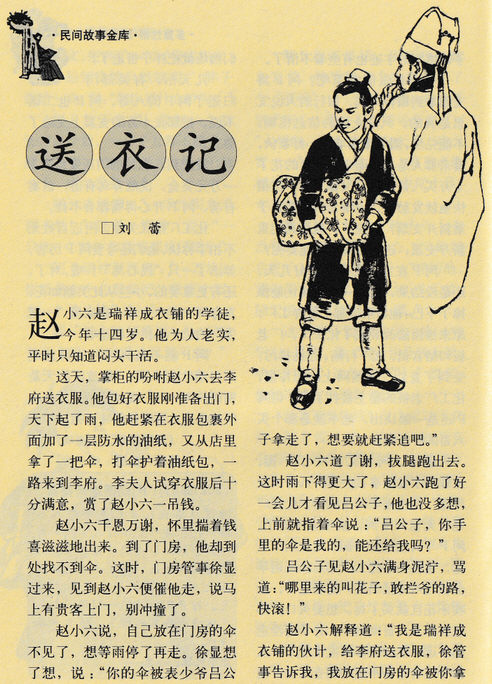 ·民间故事金库·
送衣记
□刘 蕾
赵小六是瑞祥成衣铺的学徒，
今年十四岁。他为人老实，
平时只知道闷头干活。
这天，掌柜的吩咐赵小六去李
府送衣服。他包好衣服刚准备出门，
天下起了雨，他赶紧在衣服包裹外
面加了一层防水的油纸，又从店里
拿了一把伞，打伞护着油纸包，一
路来到李府。李夫人试穿衣服后十
分满意，赏了赵小六一吊钱。
赵小六千恩万谢，怀里揣着钱
喜滋滋地出来。到了门房，他却到
处找不到伞。这时，门房管事徐显
过来，见到赵小六便催他走，说马
上有贵客上门，别冲撞了。
赵小六说，自己放在门房的伞
不见了，想等雨停了再走。徐显想
了想，说：“你的伞被表少爷吕公
子拿走了，想要就赶紧追吧。”
赵小六道了谢，拔腿跑出去。
这时雨下得更大了，赵小六跑了好
一会儿才看见吕公子，他也没多想，
上前就指着伞说：“吕公子，你手
里的伞是我的，能还给我吗？”
吕公子见赵小六满身泥泞，骂
道：“哪里来的叫花子，敢拦爷的路，
快滚！”
赵小六解释道：“我是瑞祥成
衣铺的伙计，给李府送衣服，徐管
事告诉我，我放在门房的伞被你拿